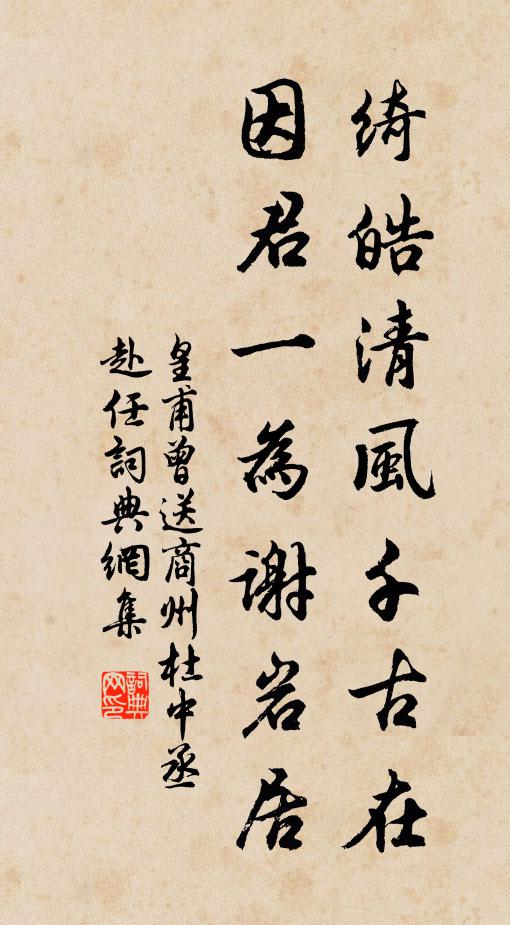 綺皓清風千古在
因君一為謝岩居
皇甫曾送商州杜中丞
赴任詞典網集
詞典
网印